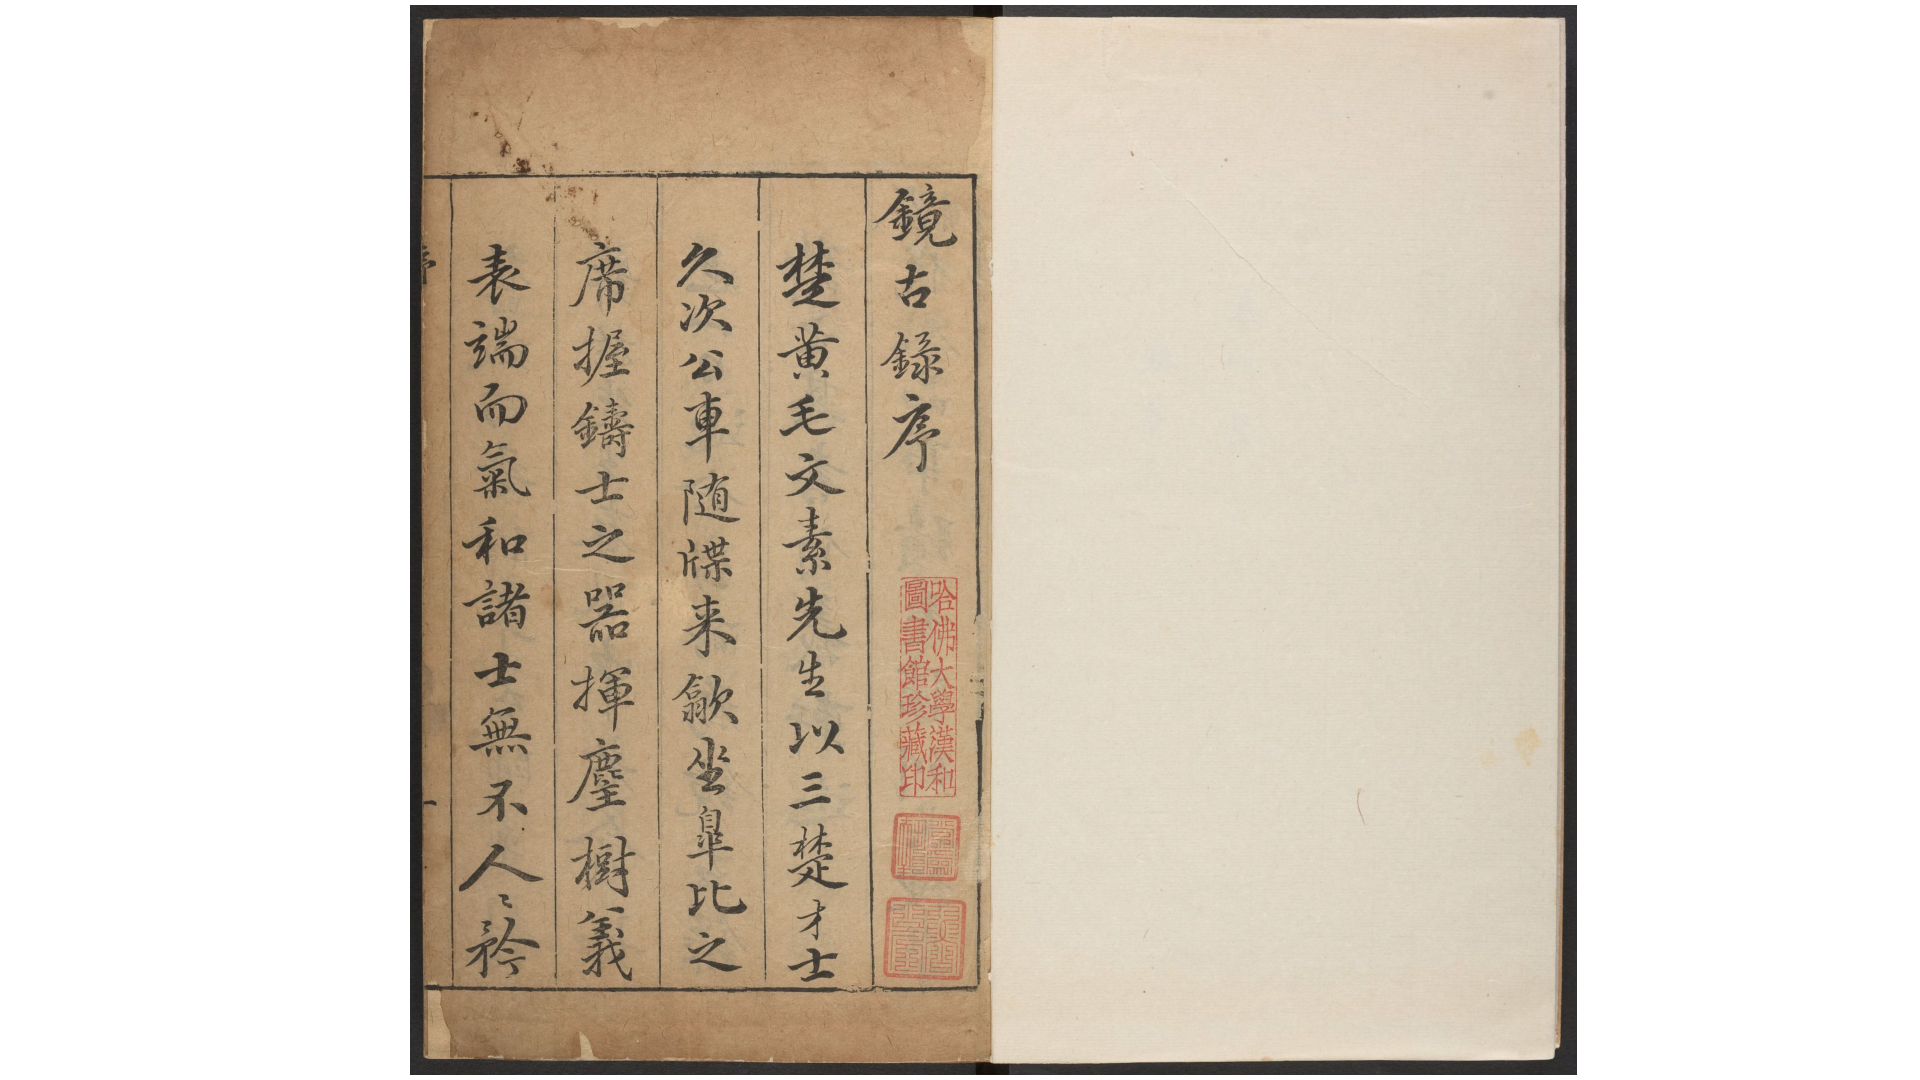 鏡古錄序
楚黄毛文素先生以三楚才士
久次公車随牒来歙坐臯比之
席握鑄士之器揮麈樹義
表端而氣和諸士無不人〻矜
序
一
哈佛大學漢和
圖書館珍藏印